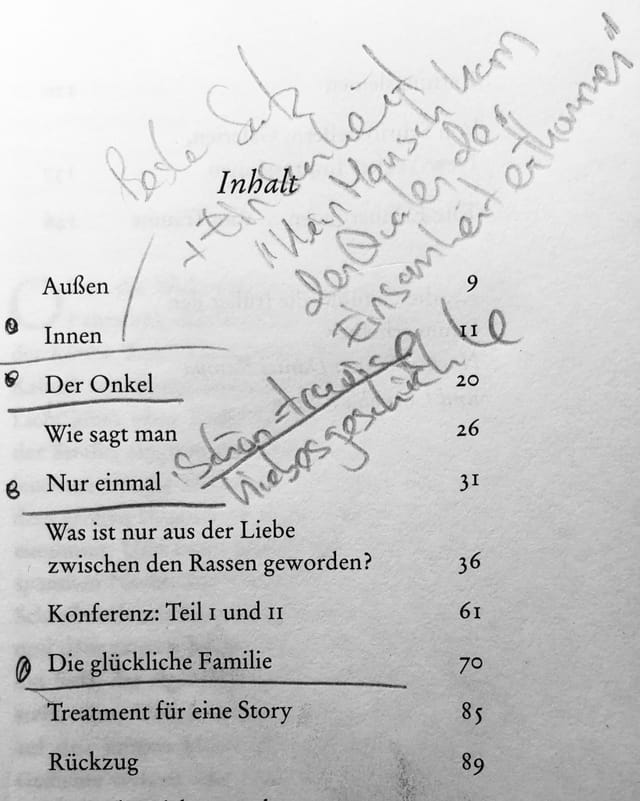 Inhalt
+ Einsamkeit
"Kein Mensch kann
der
Einsamkeit entkommen"
Außen 9
Innen 11
Der Onkel 20
Wie sagt man 26
schön-traurige
Liebesgeschichte
Nur einmal 31
Was ist nur aus der Liebe
zwischen den Rassen geworden? 36
Konferenz: Teil I und II 61
Die glückliche Familie 70
Treatment für eine Story 85
Rückzug 89